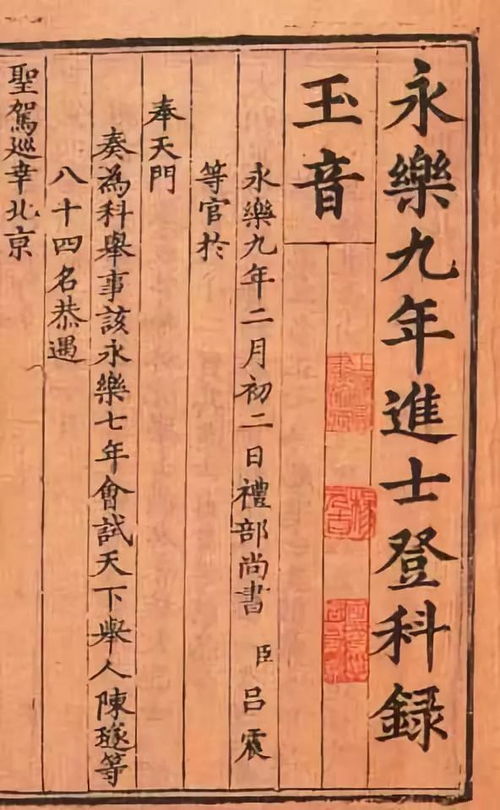 永樂九年進士登科錄
玉音
永樂九年二月初二日禮部尚書臣呂震
等官於
奉天門
奏為科舉事該永樂七年會試天下舉人陳璲等
八十四名恭遇
聖駕巡幸北京